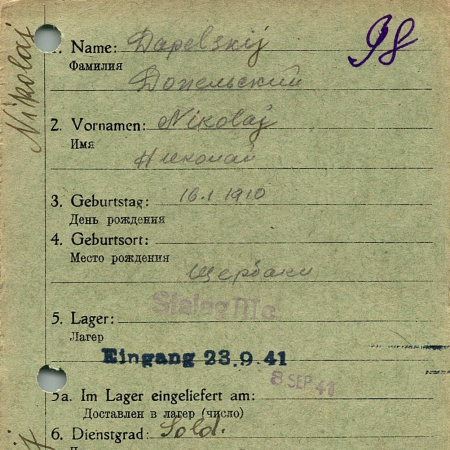 98
Nikolaj
1. Name: Dapelskij
Фамилия
Допельский
2. Vornamen: Nikolaj
Имя
Николай
3. Geburtstag: 16.1.1910
День рождения
4. Geburtsort:
Место рождения
Щербаки
Stalag III c
5. Lager:
Лагер
Eingang 23.9.41
8 SEP 41
5a. Im Lager eingeliefert am:
Доставлен в лагер (число)
6. Dienstgrad: Sold.